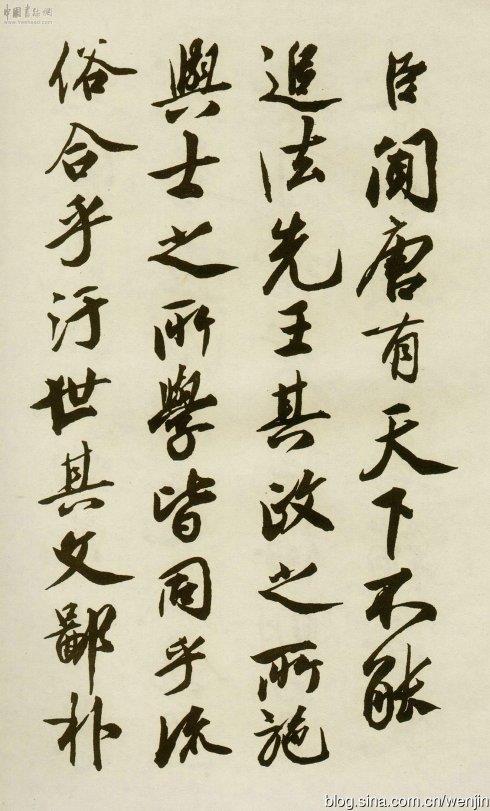 臣聞唐有天下不能
追法先王其政之所施
與士之所學皆同乎流
俗合乎汙世其文鄙朴
中国書法網
www.freehead.com
blog.sina.com.cn/wenjin